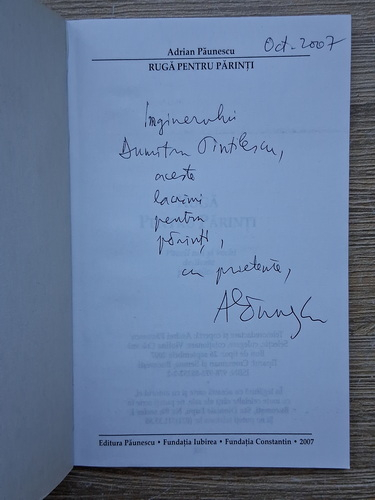 Oct - 2007
Adrian Păunescu
RUGĂ PENTRU PĂRINȚI
Inginerului
Dumitru Pintilescu,
aceste
lacrimi
pentru
părinți,
cu prietenie,
APăunescu
Editura Păunescu • Fundația Iubirea • Fundația Constantin • 2007